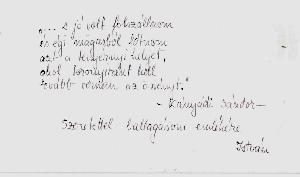 "... s jó volt fölszállnom
és égi magasból látnom
azt a tenyérnyi helyet,
ahol toronyiránt kell
tovább vernem az ösvényt."
- Kányádi Sándor -
Szeretettel ballagásom emlékére
István